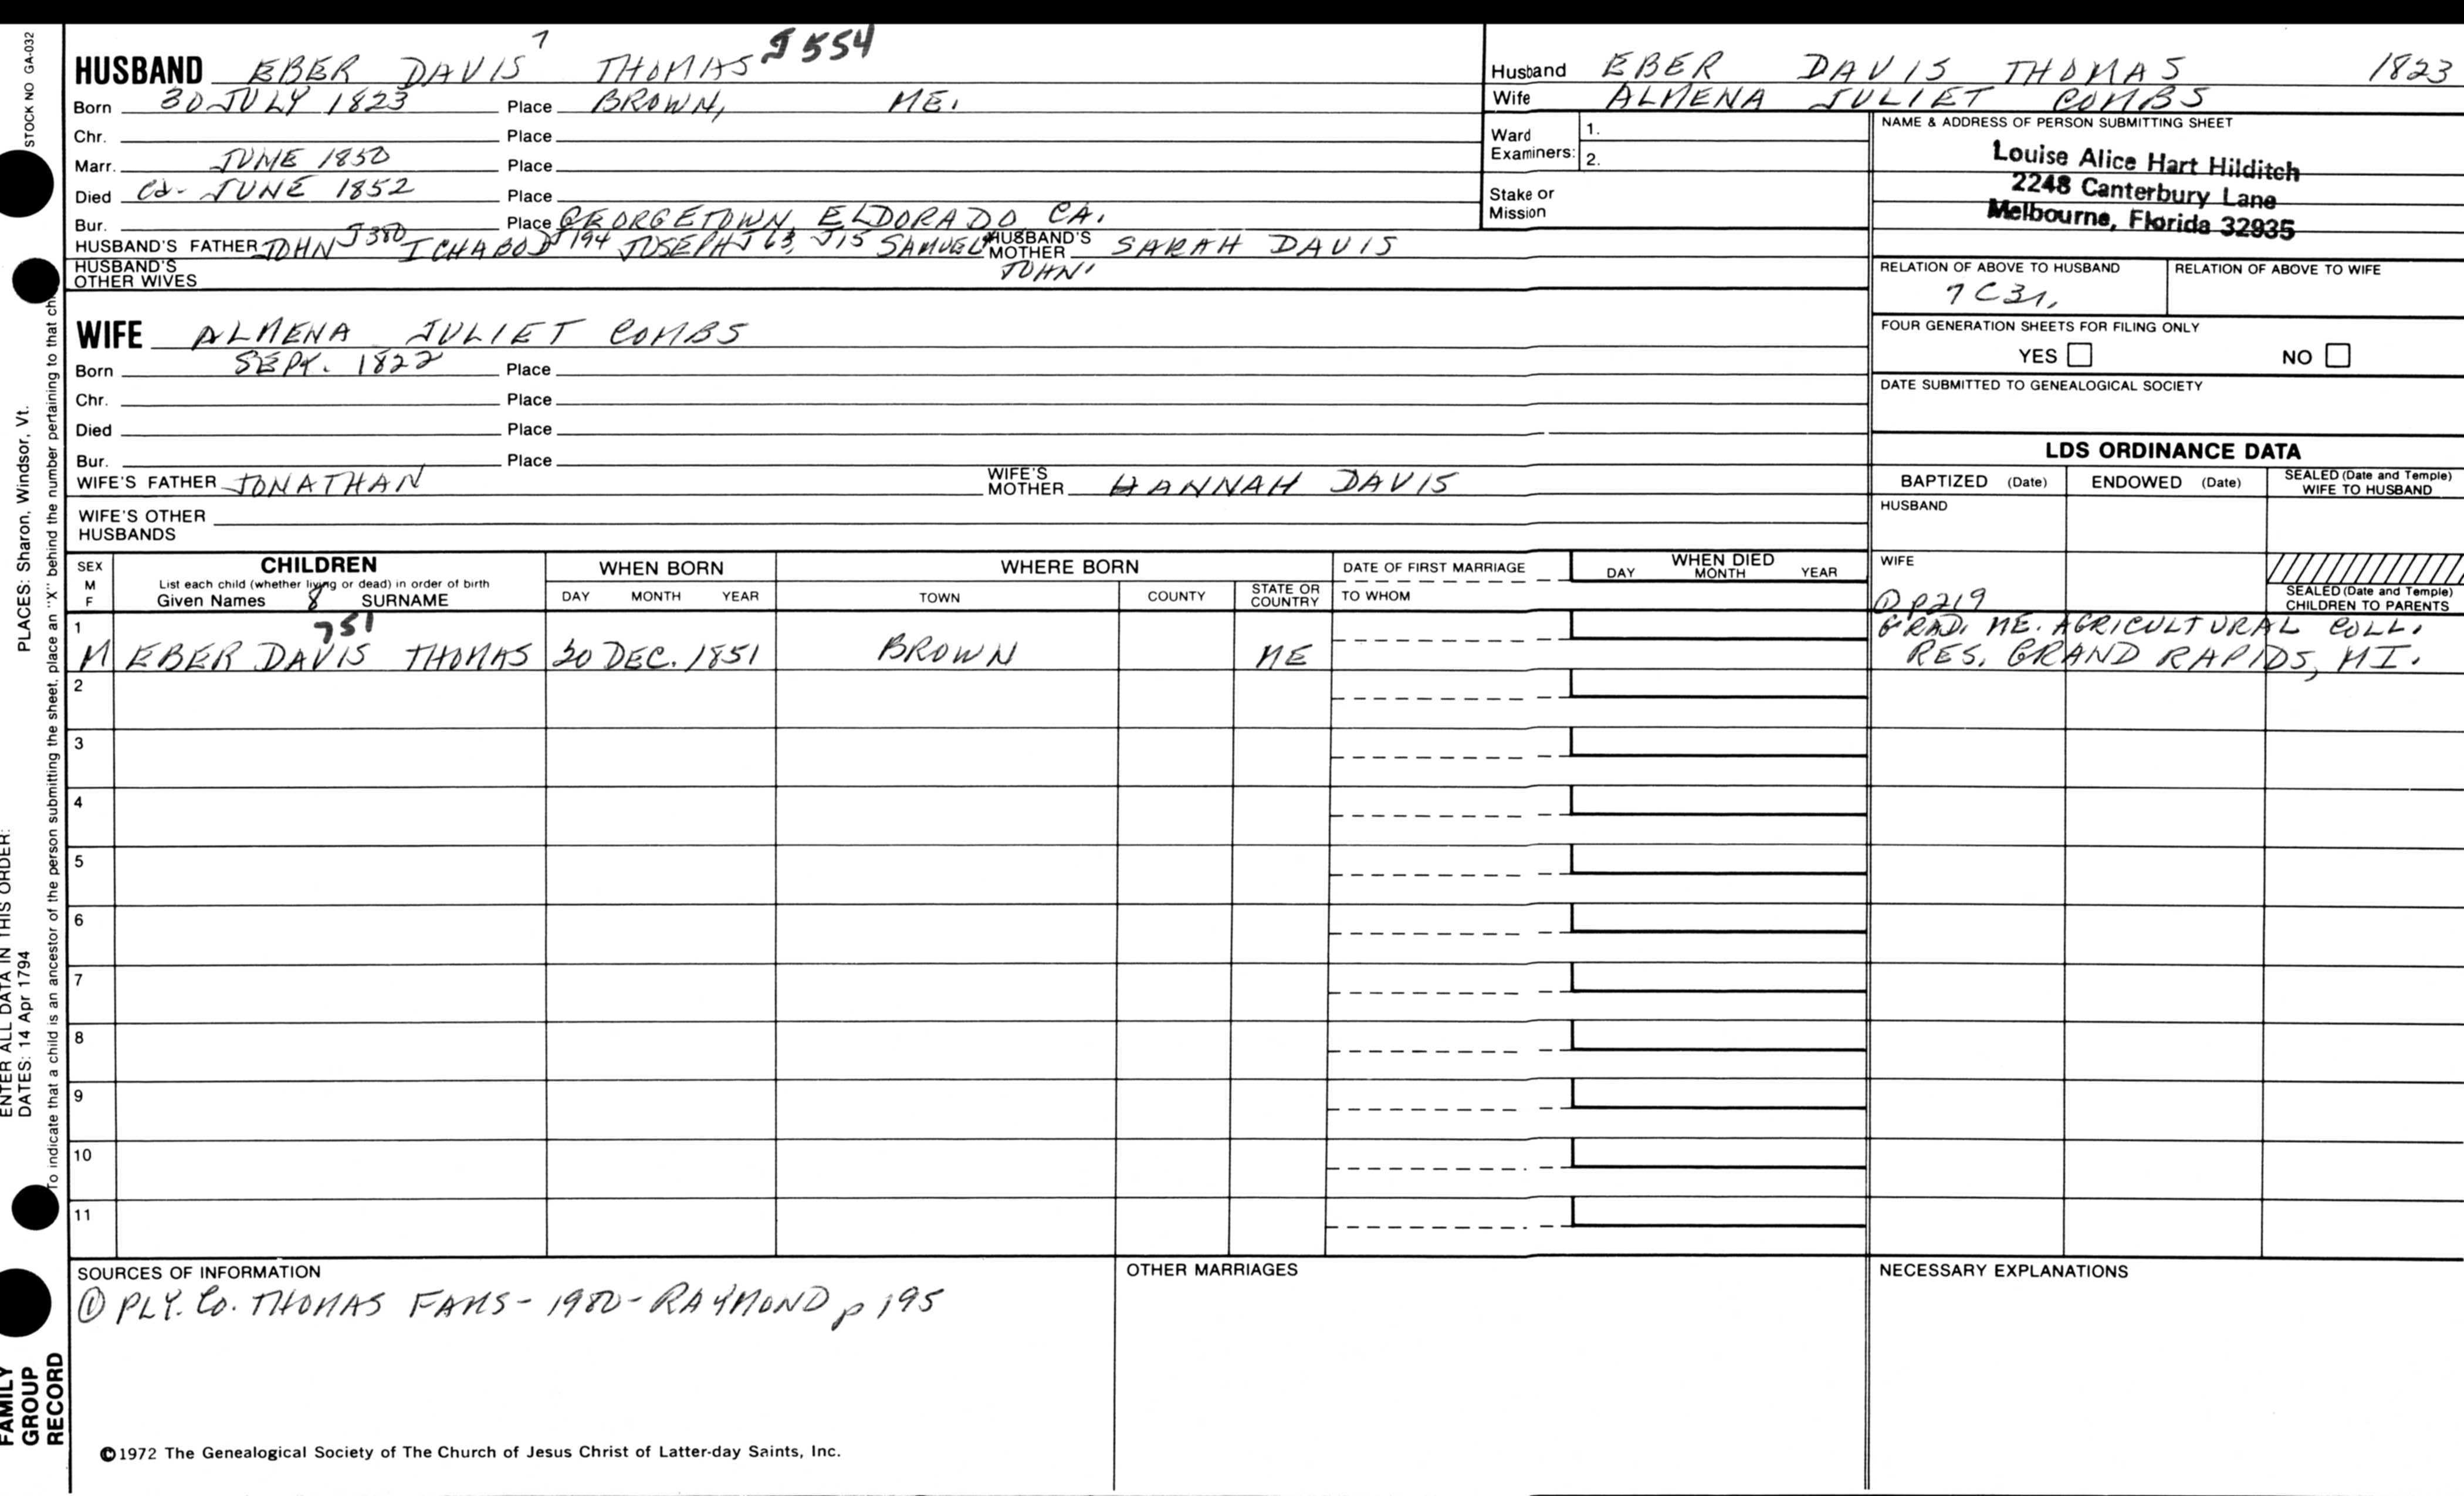 STOCK NO GA-032
HUSBAND EBER DAVIS 7 THOMAS J554
Born 30 JULY 1823 Place BROWN, ME.
Chr. Place
Marr. JUNE 1850 Place
Died ca- JUNE 1852 Place
Bur. Place GEORGETOWN, ELDORADO CA.
HUSBAND'S FATHER JOHN J380 ICHABOD J194 JOSEPH J63, J15 SAMUEL4 HUSBAND'S MOTHER SARAH DAVIS
JOHN'
HUSBAND'S OTHER WIVES
WIFE ALMENA JULIET COMBS
Born SEPT. 1822 Place
Chr. Place
Died Place
Bur. Place
WIFE'S FATHER JONATHAN WIFE'S MOTHER HANNAH DAVIS
WIFE'S OTHER HUSBANDS
Husband EBER DAVIS THOMAS 1823
Wife ALMENA JULIET COMBS
Ward Examiners: 1.
2.
Stake or Mission
NAME & ADDRESS OF PERSON SUBMITTING SHEET
Louise Alice Hart Hilditch
2248 Canterbury Lane
Melbourne, Florida 32935
RELATION OF ABOVE TO HUSBAND RELATION OF ABOVE TO WIFE
7C31,
FOUR GENERATION SHEETS FOR FILING ONLY
YES NO
DATE SUBMITTED TO GENEALOGICAL SOCIETY
LDS ORDINANCE DATA
BAPTIZED (Date) ENDOWED (Date) SEALED (Date and Temple) WIFE TO HUSBAND
HUSBAND
WIFE
SEALED (Date and Temple) CHILDREN TO PARENTS
① P219
GRAD. ME. AGRICULTURAL COLL.
RES. GRAND RAPIDS, MI.
SEX M F
CHILDREN
List each child (whether living or dead) in order of birth
Given Names 8 SURNAME
WHEN BORN
DAY MONTH YEAR
WHERE BORN
TOWN COUNTY STATE OR COUNTRY
DATE OF FIRST MARRIAGE
TO WHOM
WHEN DIED
DAY MONTH YEAR
1
751
M EBER DAVIS THOMAS 30 DEC. 1851 BROWN ME
2
3
4
5
6
7
8
9
10
11
SOURCES OF INFORMATION
① PLY. Co. THOMAS FAMS - 1980 - RAYMOND p 195
OTHER MARRIAGES
NECESSARY EXPLANATIONS
©1972 The Genealogical Society of The Church of Jesus Christ of Latter-day Saints, Inc.
ENTER ALL DATA IN THIS ORDER:
DATES: 14 Apr 1794 PLACES: Sharon, Windsor, Vt.
To indicate that a child is an ancestor of the person submitting the sheet, place an "X" behind the number pertaining to that
FAMILY
GROUP
RECORD